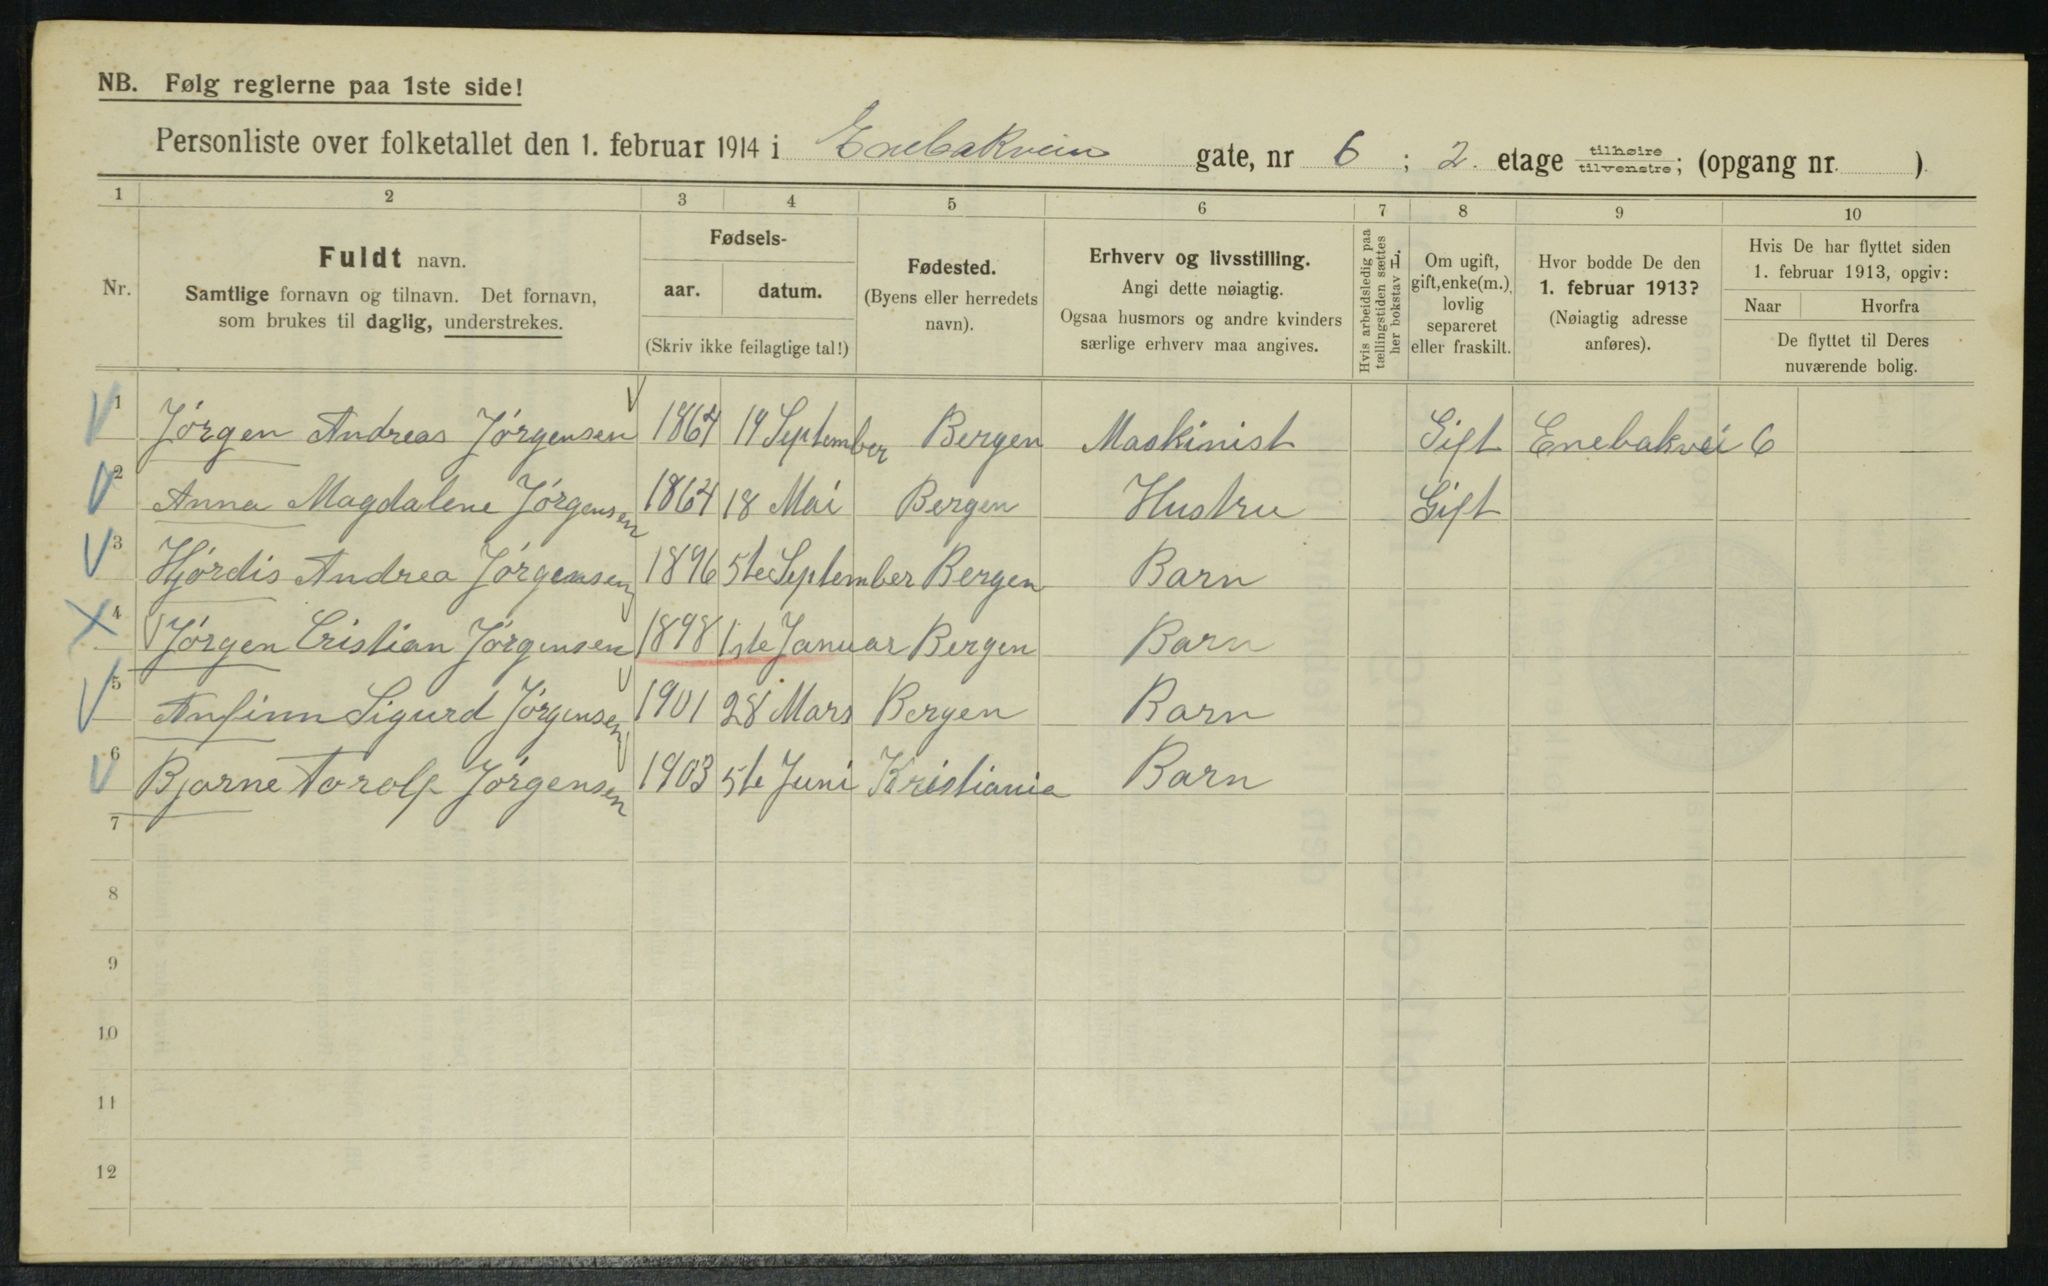 NB. Følg reglerne paa 1ste side!
Personliste over folketallet den 1. februar 1914 i Enebakvein gate, nr 6 ; 2. etage tilhøire tilvenstre; (opgang nr. )
1 2 3 4 5 6 7 8 9 10
Nr.
Fuldt navn.
Samtlige fornavn og tilnavn. Det fornavn,
som brukes til daglig, understrekes.
Fødsels-
aar. datum.
(Skriv ikke feilagtige tal!)
Fødested.
(Byens eller herredets
navn).
Erhverv og livsstilling.
Angi dette nøiagtig.
Ogsaa husmors og andre kvinders
særlige erhverv maa angives.
Hvis arbeidsledig paa
tællingstiden sættes
her bokstav L.
Om ugift,
gift, enke(m.),
lovlig
separeret
eller fraskilt.
Hvor bodde De den
1. februar 1913?
(Nøiagtig adresse
anføres).
Hvis De har flyttet siden
1. februar 1913, opgiv:
Naar Hvorfra
De flyttet til Deres
nuværende bolig.
1 Jørgen Andreas Jørgensen 1864 19 September Bergen Maskinist Gift Enebakvei 6
2 Anna Magdalene Jørgensen 1864 18 Mai Bergen Hustru Gift
3 Hjørdis Andrea Jørgensen 1896 5te September Bergen Barn
4 Jørgen Cristian Jørgensen 1898 1ste Januar Bergen Barn
5 Anfinn Sigurd Jørgensen 1901 28 Mars Bergen Barn
6 Bjarne Torolf Jørgensen 1903 5te Juni Kristiania Barn
7
8
9
10
11
12